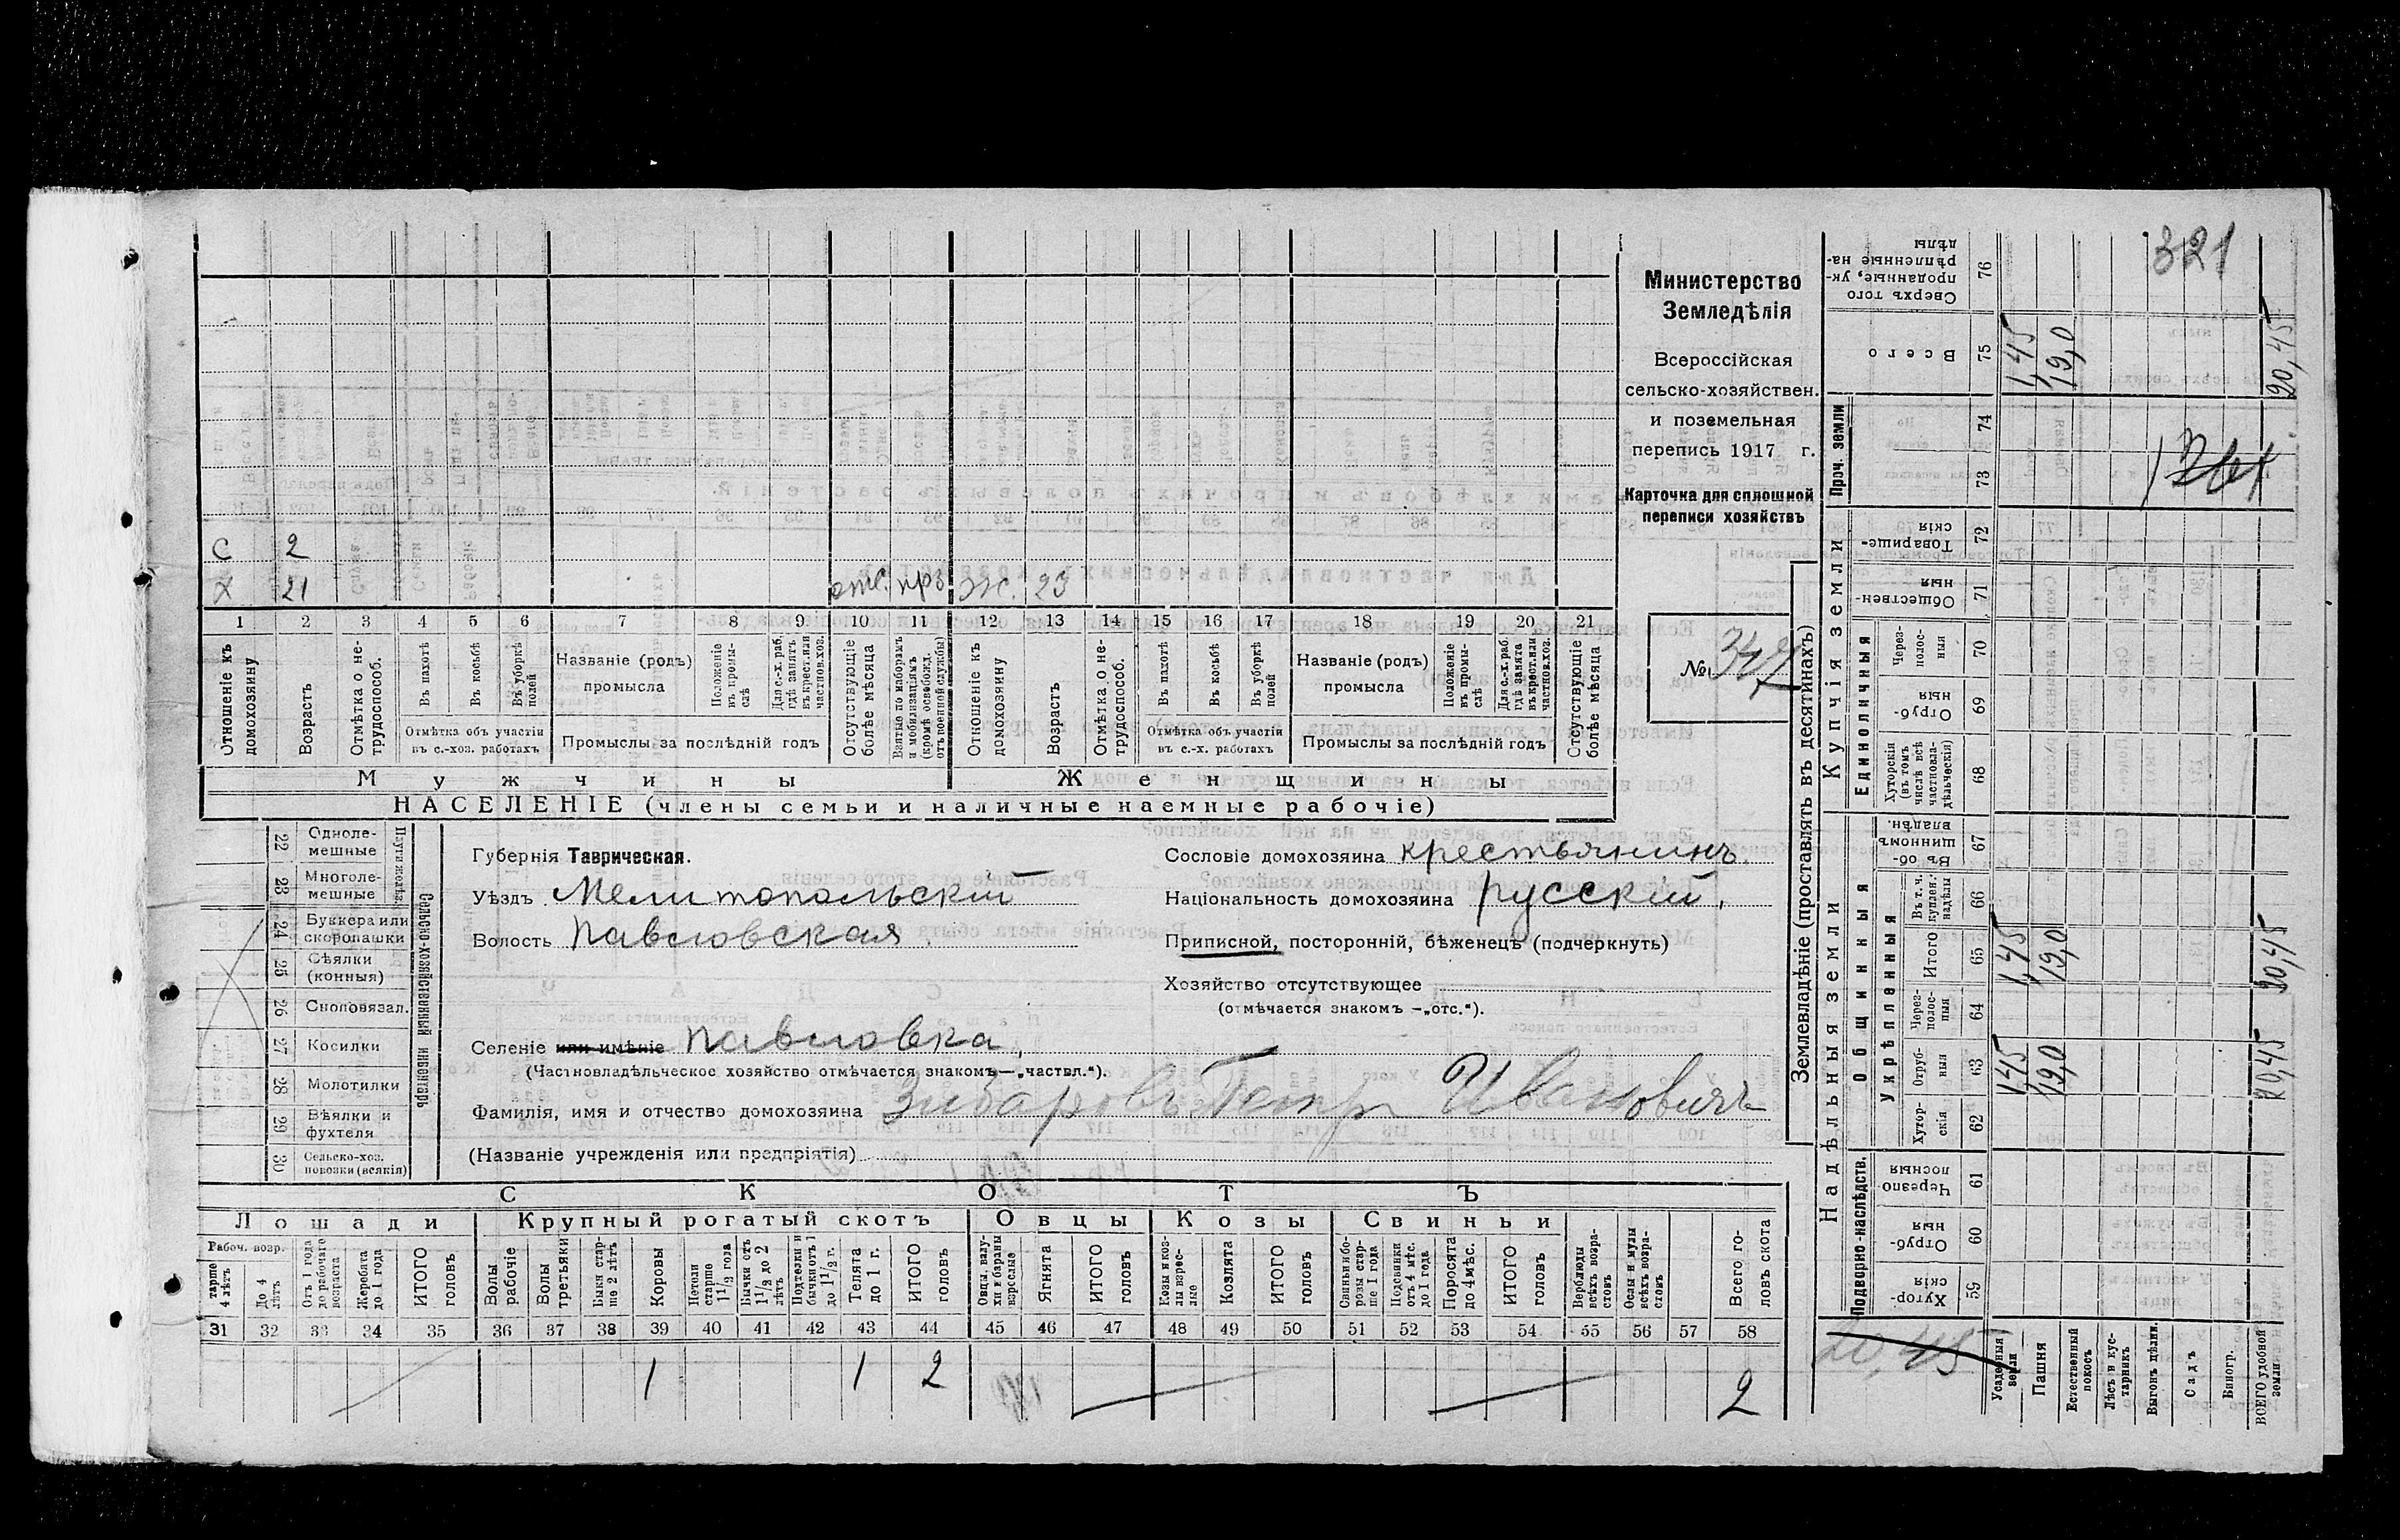 321
Министерство
Земледѣлія
Всероссійская
сельско-хозяйствен.
и поземельная
перепись 1917 г.
Карточка для сплошной
переписи хозяйствъ
№ 347
С 2
Х 21 отс. прз. ж. 23
1 2 3 4 5 6 7 8 9 10 11 12 13 14 15 16 17 18 19 20 21
Отношеніе къ домохозяину
Возрастъ
Отмѣтка о нетрудоспособ.
Въ пахотѣ
Въ косьбѣ
Въ уборкѣ полей
Отмѣтка объ участіи
въ с.-хоз. работахъ
Названіе (родъ)
промысла
Положеніе въ промыслѣ
Для с.-х. раб. гдѣ занятъ въ крест. или частнов. хоз.
Промыслы за послѣдній годъ
Отсутствующіе болѣе мѣсяца
Взятые по наборамъ и мобилизаціямъ (кромѣ освобожд. отъ военной службы)
Отношеніе къ домохозяину
Возрастъ
Отмѣтка о нетрудоспособ.
Въ пахотѣ
Въ косьбѣ
Въ уборкѣ полей
Отмѣтка объ участіи
въ с.-х. работахъ
Названіе (родъ)
промысла
Положеніе въ промыслѣ
Для с.-х. раб. гдѣ занята въ крест. или частнов. хоз.
Промыслы за послѣдній годъ
Отсутствующіе болѣе мѣсяца
Мужчины Женщины
НАСЕЛЕНІЕ (члены семьи и наличные наемные рабочіе)
Сельско-хозяйственный инвентарь
22 Одноле-
мешные
23 Многоле-
мешные
24 Буккера или
скоропашки
25 Сѣялки
(конныя)
26 Сноповязал.
27 Косилки
28 Молотилки
29 Вѣялки и
фухтеля
30 Сельско-хоз.
повозки (всякія)
Губернія Таврическая.
Уѣздъ Мелитопольскій
Волость Павловская
Селеніе или имѣніе Павловка,
(Частновладѣльческое хозяйство отмѣчается знакомъ—„частвл.“).
Фамилія, имя и отчество домохозяина Зибаровъ Петръ Ивановичъ
(Названіе учрежденія или предпріятія)
Сословіе домохозяина крестьянинъ.
Національность домохозяина русскій.
Приписной, посторонній, бѣженецъ (подчеркнуть)
Хозяйство отсутствующее
(отмѣчается знакомъ —„отс.“).
СКОТЪ
Лошади Крупный рогатый скотъ Овцы Козы Свиньи
Рабоч. возр.
старше 4 лѣтъ
До 4 лѣтъ
Отъ 1 года до рабочаго возраста
Жеребята до 1 года
ИТОГО головъ
Волы рабочіе
Волы третьяки
Быки старше 2 лѣтъ
Коровы
Нетели старше 1 1/2 года
Бычки отъ 1 1/2 до 2 лѣтъ
Подтелки и бычки отъ 1 до 1 1/2 г.
Телята до 1 г.
ИТОГО головъ
Овцы, валухи и бараны взрослые
Ягнята
ИТОГО головъ
Козы и козлы взрослые
Козлята
ИТОГО головъ
Свиньи и боровы старше 1 года
Подсвинки отъ 4 мѣс. до 1 года
Поросята до 4 мѣс.
ИТОГО головъ
Верблюды всѣхъ возрастовъ
Ослы и мулы всѣхъ возрастовъ
Всего головъ скота
31 32 33 34 35 36 37 38 39 40 41 42 43 44 45 46 47 48 49 50 51 52 53 54 55 56 57 58
1 1 2 2
Землевладѣніе (проставлять въ десятинахъ)
Надѣльныя земли Купчія земли Проч. земли
Подворно-наслѣдств. Общинныя Единоличныя
Укрѣпленныя
59 Хуторскія
60 Отрубныя
61 Черезполосныя
62 Хуторскія
63 Отрубныя
64 Черезполосныя
65 Итого
66 Въ т. ч. куплен. надѣлы
67 Въ общинномъ владѣн.
68 Хуторскія (въ томъ числѣ всѣ частновладѣльческія)
69 Отрубныя
70 Черезполосныя
71 Общественныя
72 Товарищескія
73
74
75 Всего
76 Сверхъ того проданные, укрѣпленные надѣлы
Усадебныя земли 1,45 1,45 1,45
Пашня 19,0 19,0 19,0
Естественный покосъ
Лѣсъ и кустарникъ
Выгонъ дѣлян.
Садъ
Виногр.
ВСЕГО удобной земли 20,45 20,45 20,45
20,45